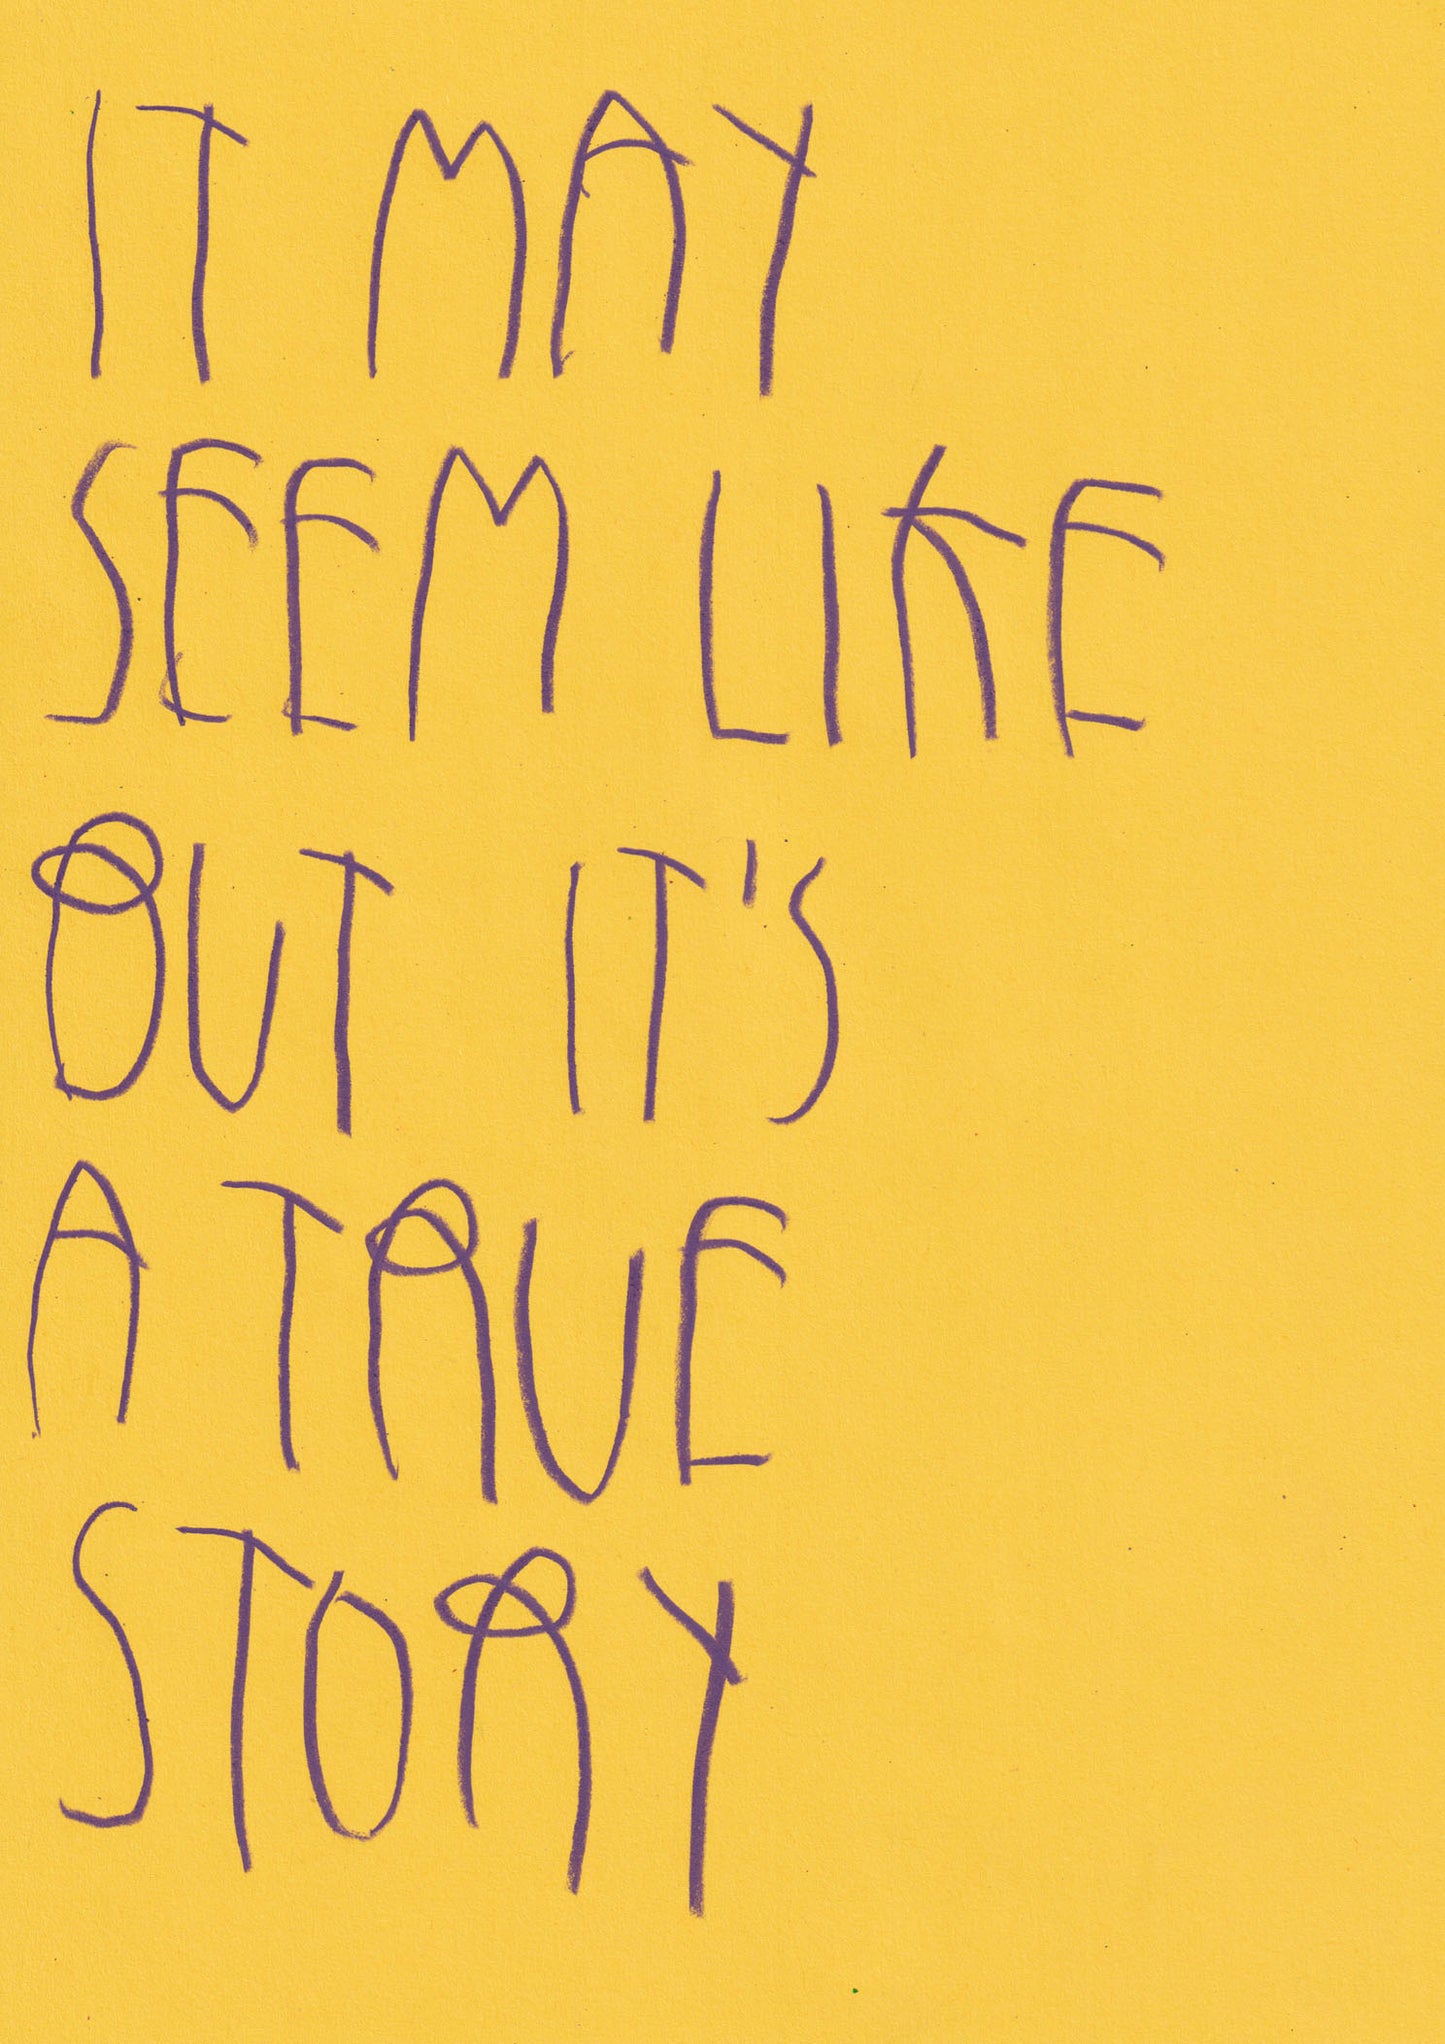 IT MAY
SEEM LIKE
BUT IT'S
A TRUE
STORY